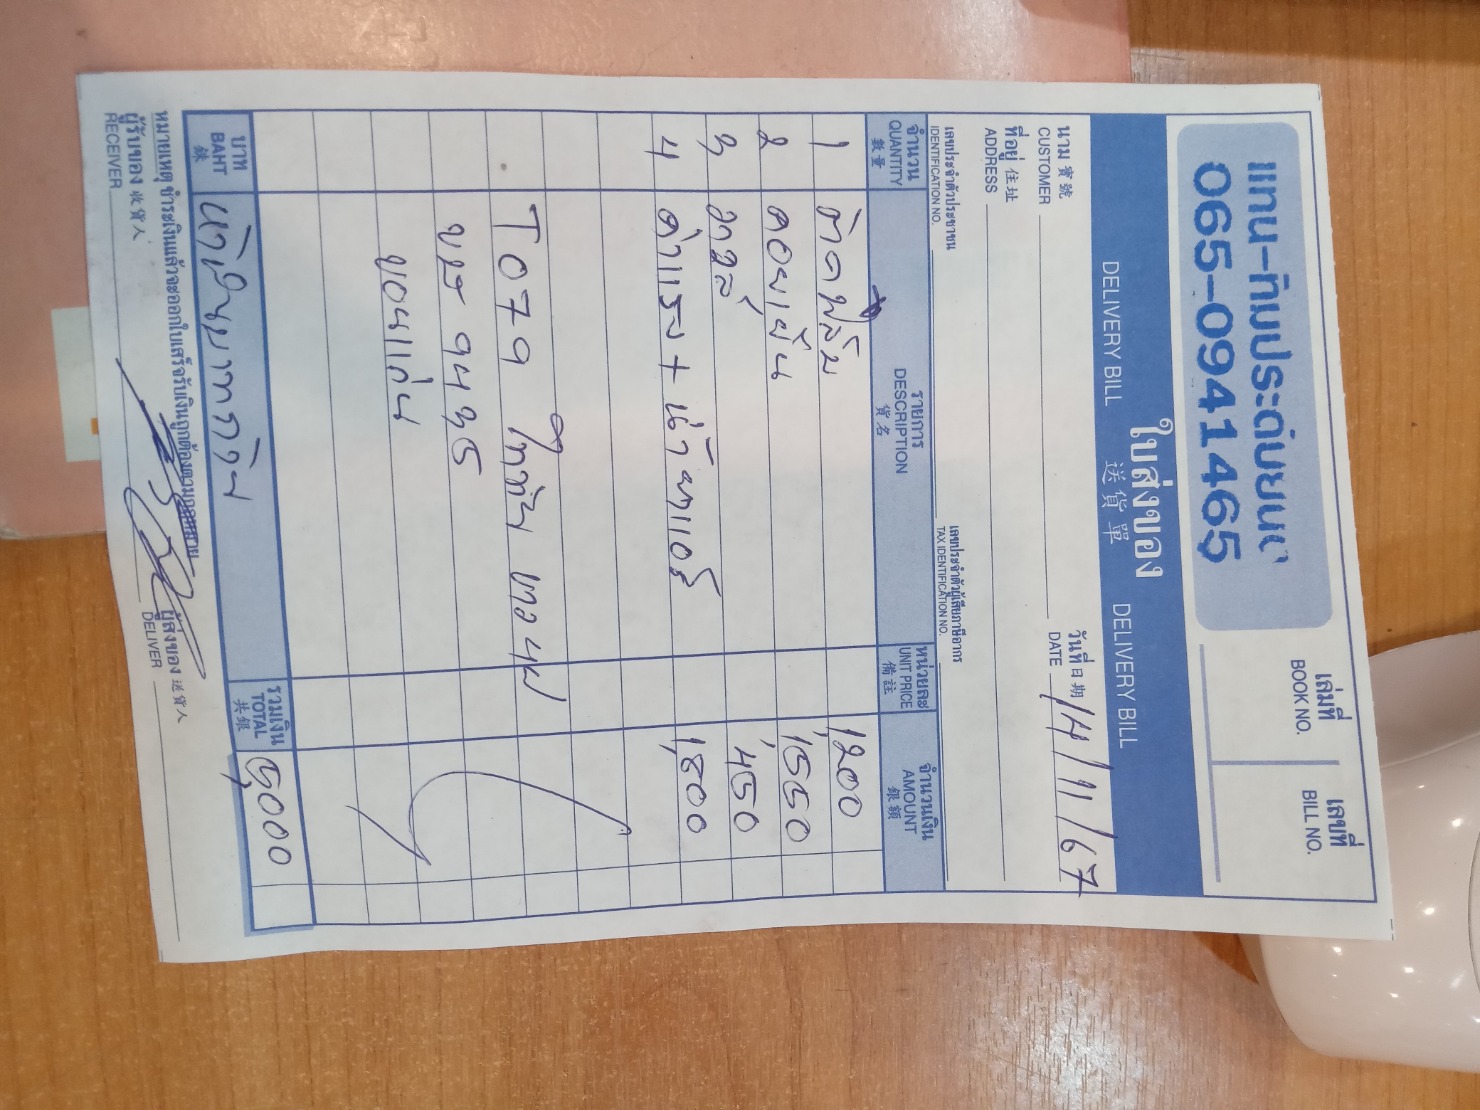 แทน-ทิมประดับยนต์
065-0941465
เล่มที่
BOOK NO.
เลขที่
BILL NO.
ใบส่งของ
DELIVERY BILL 送貨單 DELIVERY BILL
วันที่ 日期 14/11/67
DATE
นาม 寶號
CUSTOMER
ที่อยู่ 住址
ADDRESS
เลขประจำตัวประชาชน
IDENTIFICATION NO.
เลขประจำตัวผู้เสียภาษีอากร
TAX IDENTIFICATION NO.
จำนวน QUANTITY 數量 รายการ DESCRIPTION 貨名 หน่วยละ UNIT PRICE 備註 จำนวนเงิน AMOUNT 銀額
1 1,200
2 คอยเย็น 1,550
3 วาล์ว 450
4 ค่าแรง + น้ำยาแอร์ 1,800
T079
ขอนแก่น
บาท BAHT 銖 ห้าพันบาทถ้วน รวมเงิน TOTAL 共銀 5,000
หมายเหตุ ชำระเงินแล้วจะออกใบเสร็จรับเงินถูกต้องตามกฎหมาย
ผู้รับของ 收貨人
RECEIVER
ผู้ส่งของ 送貨人
DELIVER